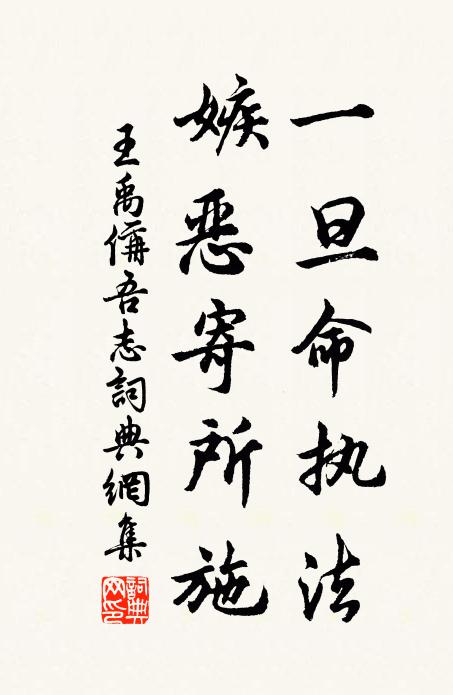 一旦命执法
嫉恶寄所施
王禹偁吾志詞典網集
詞典網印